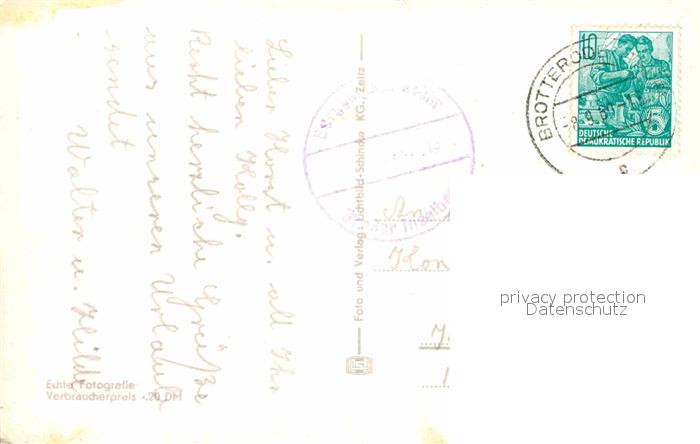 Lieber Horst u. all Ihr
lieben Kollg.
Recht herzliche Grüße
aus unserem Urlaub
sendet
Walter u. Hilde
Echte Fotografie
Verbraucherpreis -.20 DM
Foto und Verlag: Lichtbild-Schincke KG., Zeitz
Großer Inselberg
An
10
5
DEUTSCHE
DEMOKRATISCHE REPUBLIK
BROTTERODE
privacy protection
Datenschutz